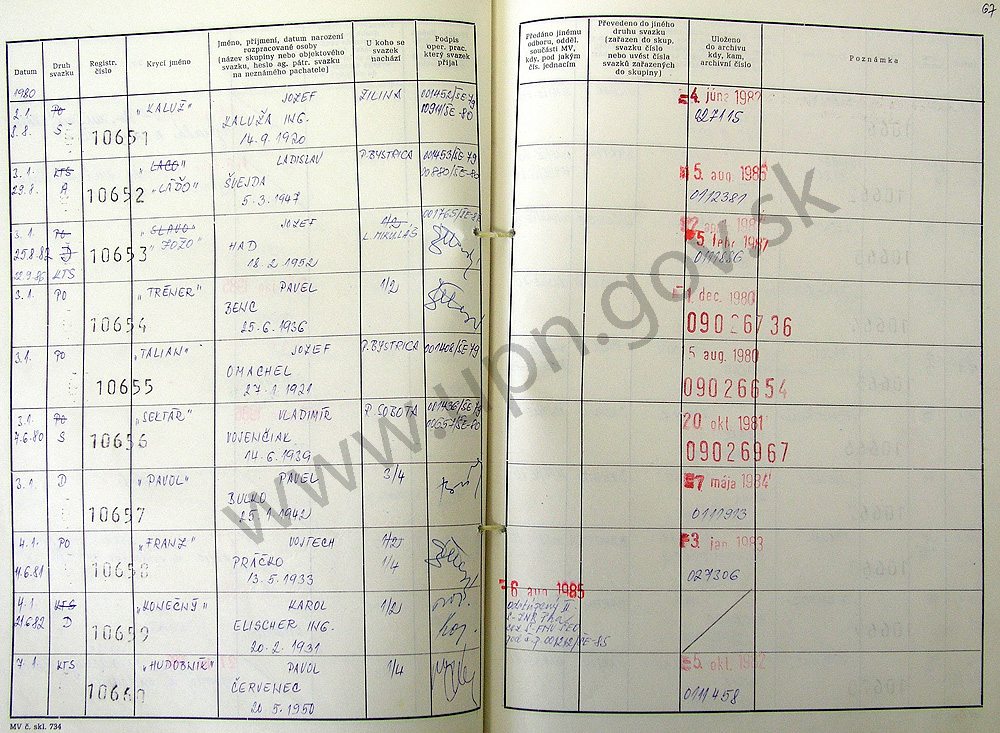 67
Datum
Druh svazku
Registr. číslo
Krycí jméno
Jméno, příjmení, datum narození
rozpracované osoby
(název skupiny nebo objektového
svazku, heslo ag. pátr. svazku
na neznámého pachatele)
U koho se
svazek
nachází
Podpis
oper. prac.
který svazek
přijal
Předáno jinému
odboru, odděl.
součásti MV,
kdy, pod jakým
čís. jednacím
Převedeno do jiného
druhu svazku
(zařazen do skup.
svazku číslo
nebo uvést čísla
svazků zařazených
do skupiny)
Uloženo
do archivu
kdy, kam,
archivní číslo
Poznámka
1980
2.1. PO „KALUŽ" JOZEF ŽILINA 001452/ŠE-79 4. júna 1982
8.8. S 10651 KALUŽA ING. 1091/ŠE-80 027115
14.9.1920
3.1. KTS „LACO" LADISLAV P. BYSTRICA 001453/ŠE-79 5. aug. 1985
29.8. A 10652 „LAĎO" ŠVEJDA 0112381
5.3.1947
3.1. PO „SLAVO" JOZEF 1/2
25.8.82 10653 „JOŽO" HAD L. MIKULÁŠ 5. febr. 1987
22.9.86 KTS 18.2.1952
3.1. PO „TRÉNER" PAVEL 1/2 1. dec. 1980
10654 BENC 09026736
25.6.1936
3.1. PO „TALIAN" JOZEF P. BYSTRICA 001408/ŠE-79 5. aug. 1980
10655 OMACHEL 09026654
27.1.1921
3.1. PO „SEKTÁŘ" VLADIMÍR R. SOBOTA 001436/ŠE-79 20. okt. 1981
7.6.80 S 10656 VOJENČIAK 09026967
14.6.1939
3.1. D „PAVOL" PAVEL 3/4 7. mája 1984
10657 BULKO 0111913
25.1.1942
4.1. PO „FRANZ" VOJTECH 1/2 3. jan. 1983
11.6.81 10658 PRÁČKO 1/4 027306
13.5.1933
4.1. KTS „KONEČNÝ" KAROL 1/2 6. aug. 1985
21.6.82 D 10659 ELISCHER ING.
20.2.1931
7.1. KTS „HUDOBNÍK" PAVOL 1/4 5. okt. 1982
10660 ČERVENEC 0111458
20.5.1950
MV č. skl. 734
www.upn.gov.sk